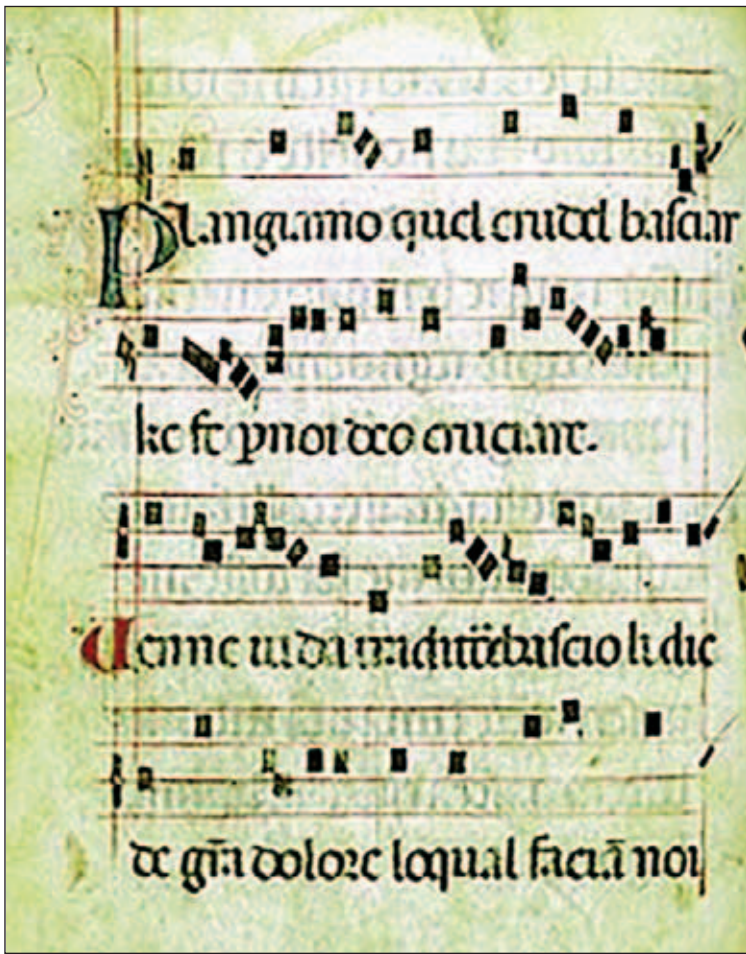 Plangiamo quel crudel basciar
ke fe p noi deo cruciare.
Uenne iuda traditore bascio li die
de grā dolore loqual faciā noi